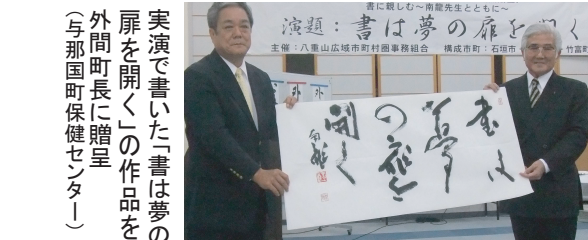 実演で書いた「書は夢の
扉を開く」の作品を
外間町長に贈呈
（与那国町保健センター）
書に親しむ～南龍先生とともに～
演題：書は夢の扉を開く
主催：八重山広域市町村圏事務組合　構成市町：石垣市
竹富
外
書は
夢
の扉を
開く
南龍